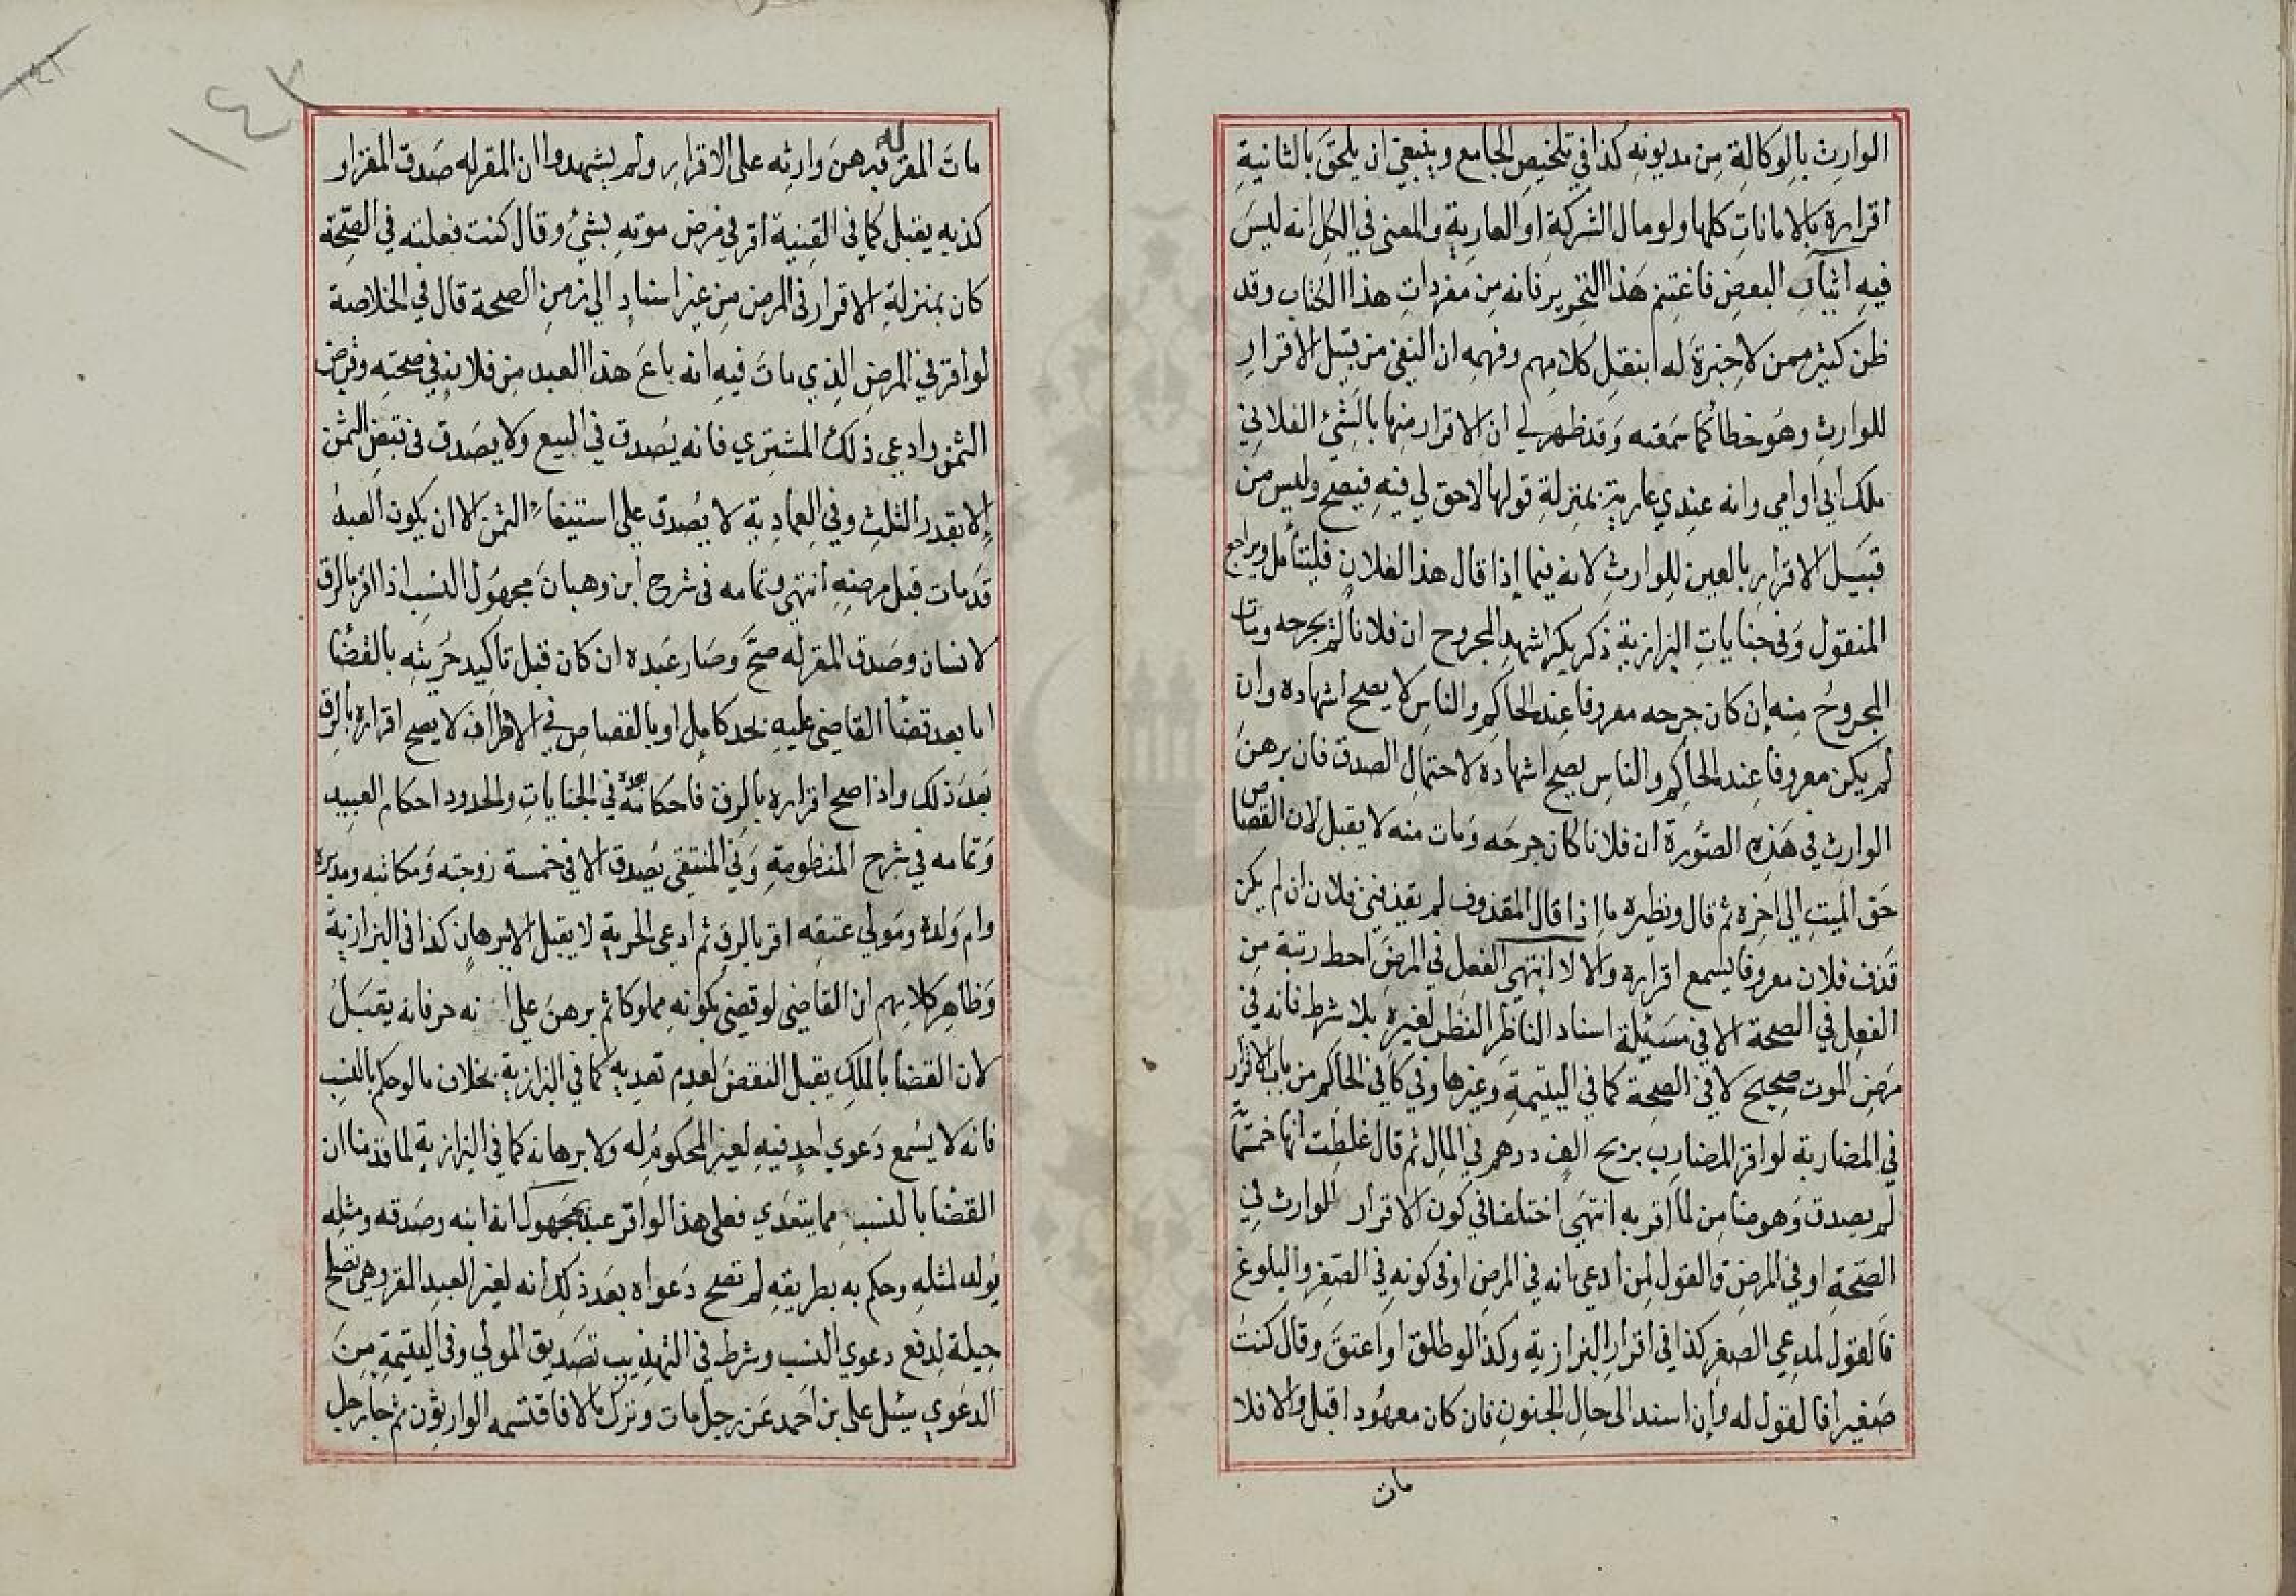 الوارث بالوكالة من مديونه كذا في تلخيص الجامع وينبغي ان يلحق بالثانية
اقراره بالامانات كلها ولو مال الشركة او العارية والمعنى في الكل انه ليس
فيه اثبات البعض فاغتنم هذا التحرير فانه من مفردات هذا الكتاب وقد
ظن كثير ممن لا خبرة له بنقل كلامهم وفهمه ان النفي من قبيل الاقرار
للوارث وهو خطأ كما سمعته وقد ظهر لي ان الاقرار منها بالشئ الفلاني
ملك ابي او امي وانه عندي عارية بمنزلة قولها لاحق لي فيه فيصح وليس من
قبيل الاقرار بالعين للوارث لانه فيما إذا قال هذا الفلان فليتأمل ويراجع
المنقول وفي جنايات البزازية ذكر بكر اشهد المجروح ان فلانا لم يجرحه ومات
المجروح منه إن كان جرحه معروفا عند الحاكم والناس لا يصح اشهاده وان
لم يكن معروفا عند الحاكم والناس يصح اشهاده لاحتمال الصدق فان برهن
الوارث في هذه الصورة ان فلانا كان جرحه ومات منه لا يقبل لان القصاص
حق الميت الى اخره ثم قال ونظيره ما اذا قال المقذوف لم يقذفني فلان ان لم يكن
قذف فلان معروفا يسمع اقراره والا لا انتهى الفعل في المرض احط رتبة من
الفعل في الصحة الا في مسئلة اسناد الناظر النظر لغيره بلا شرط فانه في
مرض الموت صحيح لا في الصحة كما في اليتيمة وغيرها وفي كافي الحاكم من باب الاقرار
في المضاربة لو اقر المضارب بربح الف درهم في المال ثم قال غلطت انها خمسمأ
لم يصدق وهو ضامن لما اقر به انتهى اختلفا في كون الاقرار للوارث في
الصحة او في المرض فالقول لمن ادعى انه في المرض او في كونه في الصغر والبلوغ
فالقول لمدعي الصغر كذا في اقرار البزازية وكذا لو طلق او اعتق وقال كنت
صغيرا فالقول له وإن اسند الى حال الجنون فان كان معهودا قبل والا فلا
مات
١٤٧
مات المقر له فبرهن وارثه على الاقرار ولم يشهدوا ان المقر له صدق المقر او
كذبه يقبل كما في القنية اقر في مرض موته بشئ وقال كنت فعلته في الصحة
كان بمنزلة الاقرار في المرض من غير اسناد الى زمن الصحة قال في الخلاصة
لو اقر في المرض الذي مات فيه انه باع هذا العبد من فلان في صحته وقبض
الثمن وادعى ذلك المشتري فانه يصدق في البيع ولا يصدق في قبض الثمن
إلا بقدر الثلث وفي العمادية لا يصدق على استيفاء الثمن الا ان يكون العبد
قد مات قبل مرضه انتهى وتمامه في شرح ابن وهبان مجهول النسب اذا اقر بالرق
لانسان وصدق المقر له صح وصار عبده ان كان قبل تاكيد حريته بالقضا
اما بعد قضا القاضي عليه بحد كامل او بالقصاص في الاطراف لا يصح اقراره بالرق
بعد ذلك واذا صح اقراره بالرق فاحكامه بعده في الجنايات والحدود احكام العبيد
وتمامه في شرح المنظومة وفي المنتقى يصدق الا في خمسة زوجته ومكاتبه ومدبره
وام ولده ومولى عتقه اقر بالرق ثم ادعى الحرية لا يقبل الا ببرهان كذا في البزازية
وظاهر كلامهم ان القاضي لو قضى بكونه مملوكا ثم برهن على انه حر فانه يقبل
لان القضا بالملك يقبل النقض لعدم تعديه كما في البزازية بخلاف ما لو حكم بالنسب
فانه لا يسمع دعوى احد فيه لغير المحكوم له ولا برهانه كما في البزازية لما قدمنا ان
القضا بالنسب مما يتعدى فعلى هذا لو اقر عبد مجهول انه ابنه وصدقه ومثله
يولد لمثله وحكم به بطريقه لم تصح دعواه بعد ذلك انه لغير العبد المقر وهي تصلح
حيلة لدفع دعوى النسب وشرط في التهذيب تصديق المولى وفي اليتيمة من
الدعوى سئل علي بن احمد عن رجل مات وترك مالا فاقتسمه الوارثون ثم جا رجل